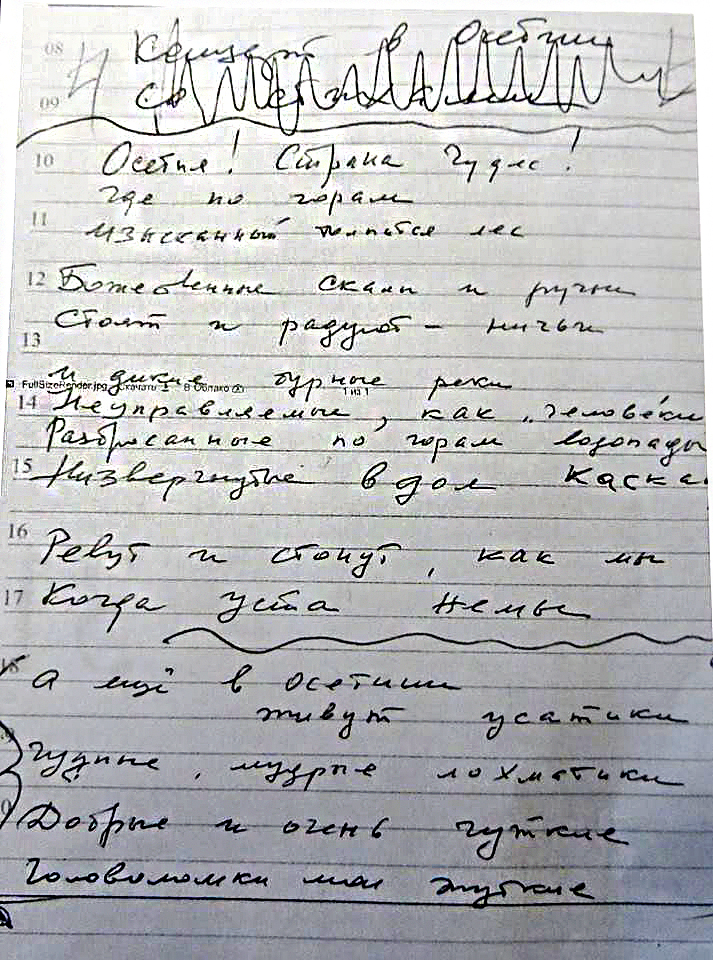 08 Концерт в Осетии
09 со стихами
10 Осетия! Страна Чудес!
Где по горам
11 Изысканный толпится лес
12 Божественные скалы и ручьи
Стоят и радуют - ничьи
13
И дикие бурные реки
FullSizeRender.jpg Скачать В Облако 1 из 1
14 Неуправляемые, как "человеки
Разбросанные по горам водопады
15 Низвергнутые в дол каска
16 Ревут и стонут, как мы
17 Когда уста немы
18 А ещё в Осетии
живут усатики
Чудные, мудрые лохматики
Добрые и очень чуткие
Головоломки мои жуткие